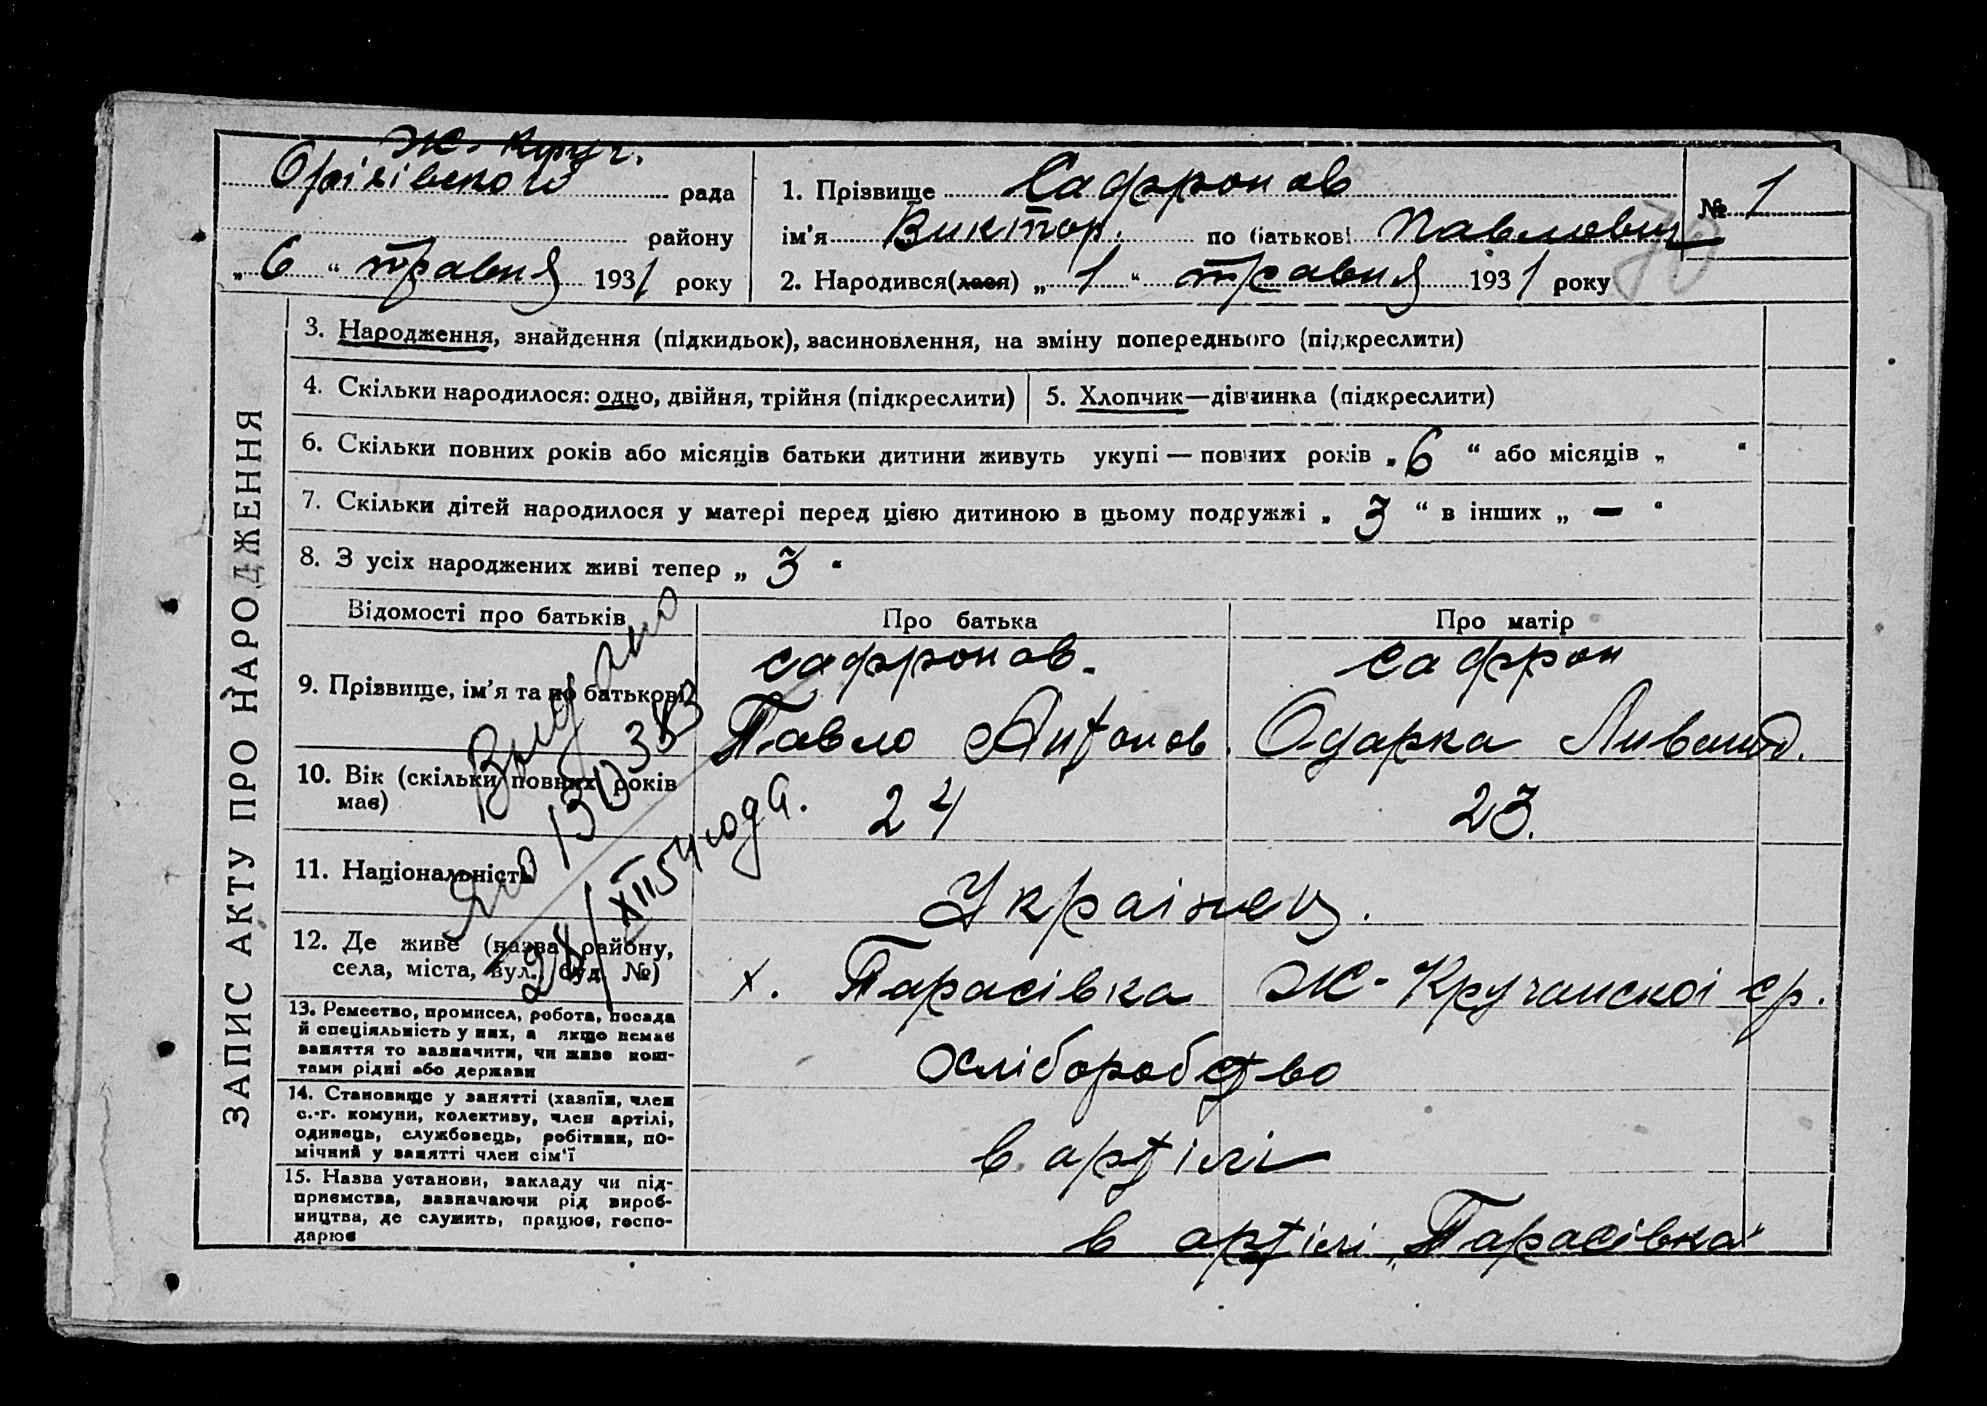 Ж. Круч.
Оріхівского рада
району
„ 6 “ травня 1931 року
1. Прізвище Сафронов
ім'я Виктор. по батькові Павлович
2. Народився(лася) „ 1 “ травня 1931 року
№ 1
ЗАПИС АКТУ ПРО НАРОДЖЕННЯ
3. Народження, знайдення (підкидьок), засиновлення, на зміну попереднього (підкреслити)
4. Скільки народилося: одно, двійня, трійня (підкреслити)
5. Хлопчик—дівчинка (підкреслити)
6. Скільки повних років або місяців батьки дитини живуть укупі — повних років „ 6 “ або місяців „ “
7. Скільки дітей народилося у матері перед цією дитиною в цьому подружжі „ 3 “ в інших „ — “
8. З усіх народжених живі тепер „ 3 “
Відомості про батьків
Про батька
Про матір
9. Прізвище, ім'я та по батькові
Сафронов.
Павло Антонов.
Сафрон
Одарка
10. Вік (скільки повних років
має)
24
23.
11. Національність
Українец.
12. Де живе (назва району,
села, міста, вул., буд. №)
х. Тарасівка Ж-Кручанскоі ср.
13. Ремество, промисел, робота, посада
й спеціяльність у них, а якщо немає
заняття то зазначити, чи живе кош-
тами рідні або держави
хліборобство
14. Становище у занятті (хазяїн, член
с.-г. комуни, колективу, член артілі,
одинець, службовець, робітник, по-
мічний у занятті член сім'ї
в артілі
15. Назва установи, закладу чи під-
приємства, зазначаючи рід вироб-
ництва, де служить, працює, госпо-
дарює
в артілі „Тарасівка“
Выдано
28/XII 54 года.